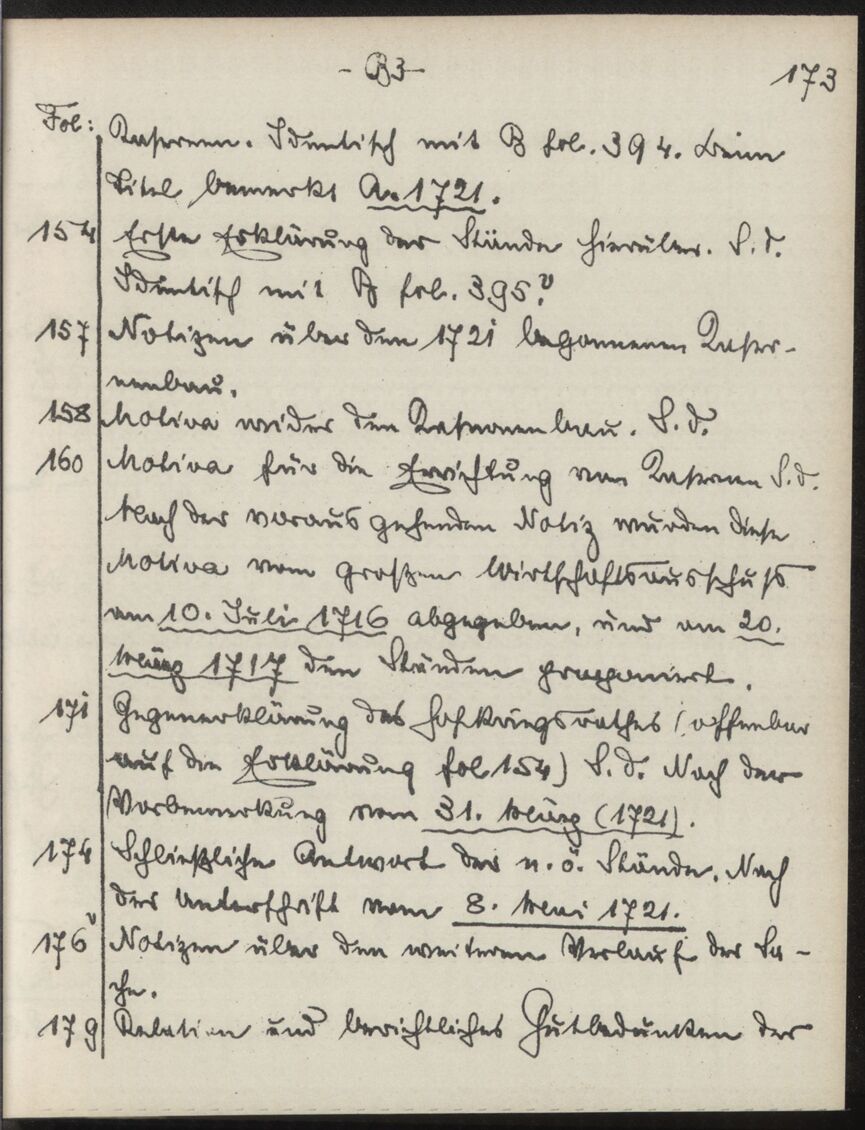 - B3 -
173
Fol: Kasernen. Identisch mit B fol. 394. Beim
Titel bemerkt Ao 1721.
154 Erste Erklärung der Stände hierüber. S. d.
Identisch mit B fol. 395.v
157 Notizen über den 1721 begonnenen Kaser-
nenbau.
158 Motiva wider den Kasernenbau. S. d.
160 Motiva für die Errichtung von Kasernen S. d.
Nach der vorausgehenden Notiz wurden diese
Motiva vom großen Wirtschaftsausschuss
am 10. Juli 1716 abgegeben, und am 20.
März 1717 den Ständen proponiert.
171 Gegenerklärung des Hofkriegsrathes (offenbar
auf die Erklärung fol 154) S. d. Nach der
Vorbemerkung vom 31. März (1721).
174 Schließliche Antwort der n. ö. Stände. Nach
der Unterschrift vom 8. Mai 1721.
176v Notizen über den weiteren Verlauf der Sa-
che.
179 Relation und berichtliches Gutbedunken der